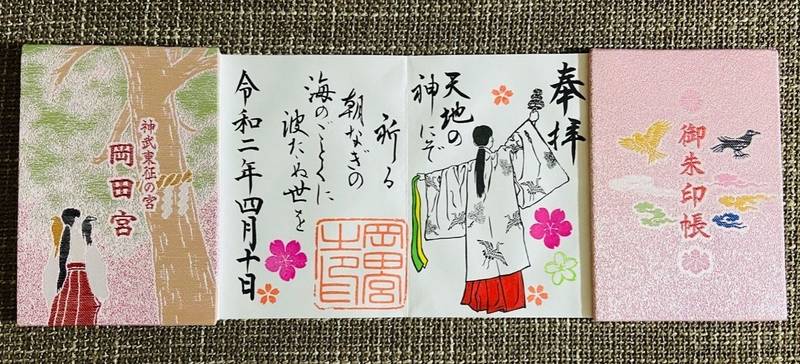 御朱印帳
奉拝
天地の
神にぞ
祈る
朝なぎの
海のごとくに
波たゝぬ世を
令和二年四月十日
岡田宮
神武東征の宮
岡田宮